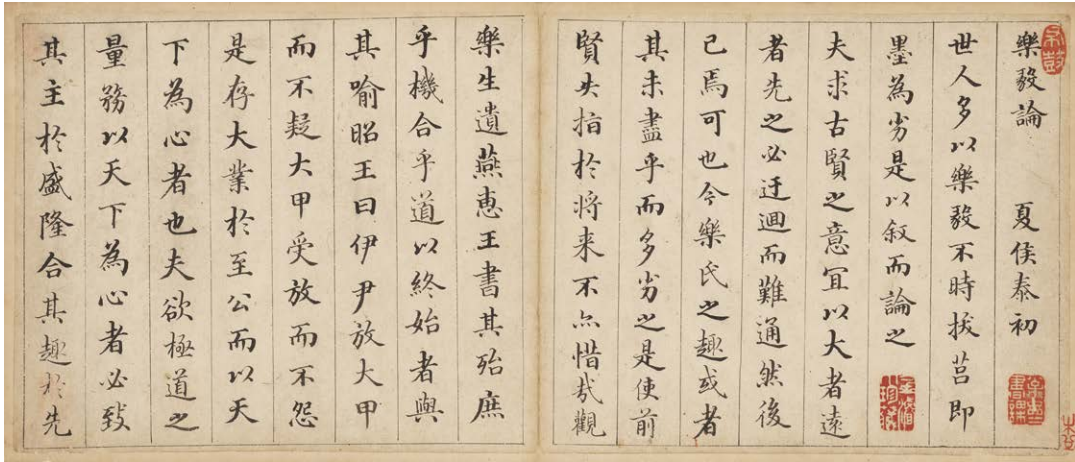 樂毅論 夏侯泰初
世人多以樂毅不時拔莒即
墨為劣是以叙而論之
夫求古賢之意冝以大者遠
者先之必迂迴而難通然後
已焉可也今樂氏之趣或者
其未盡乎而多劣之是使前
賢失指於将来不亦惜哉觀
樂生遺燕惠王書其殆庶
乎機合乎道以終始者與
其喻昭王曰伊尹放大甲
而不疑大甲受放而不怨
是存大業於至公而以天
下為心者也夫欲極道之
量務以天下為心者必致
其主於盛隆合其趣於先